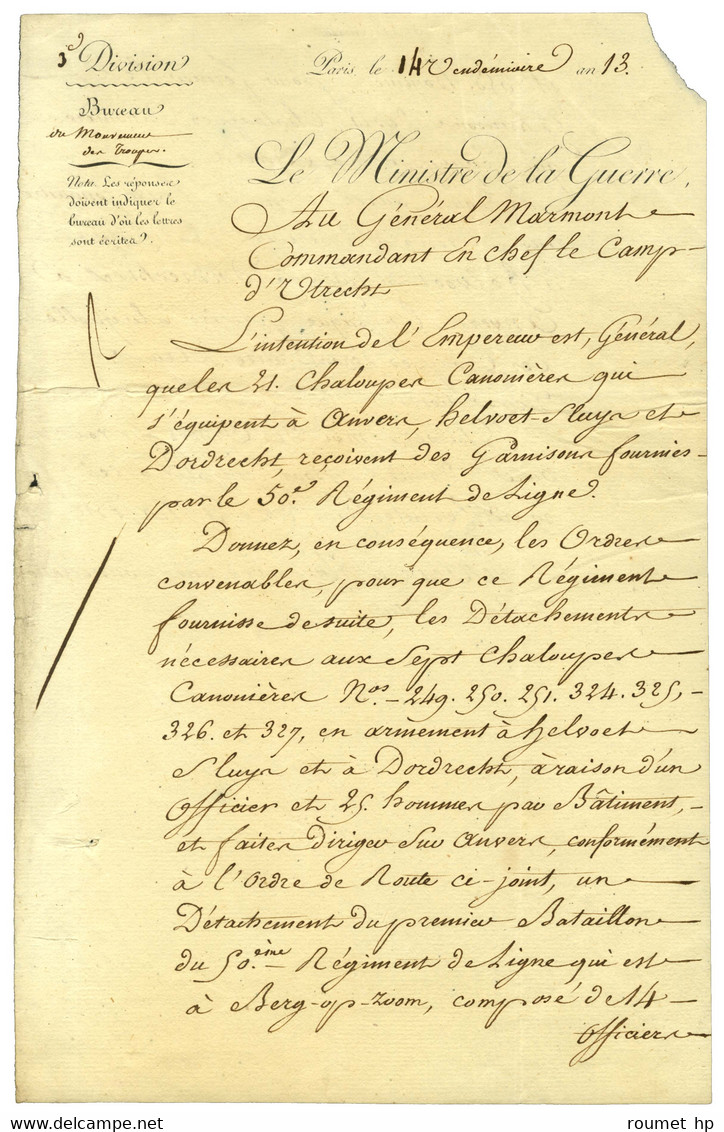 3e Division
Paris, le 14 Vendémiaire an 13.
Bureau
du Mouvement
des Troupes.
Nota. Les réponses
doivent indiquer le
bureau d'où les lettres
sont écrites.
Le Ministre de la Guerre,
Au Général Marmont
Commandant En chef le Camp
d'Utrecht
L'intention de l'Empereur est, Général,
que les 21. Chaloupes Canonières qui
s'équipent à Anvers, helvoet-Sluys et
Dordrecht, reçoivent des Garnisons fournies
par le 50e. Régiment de Ligne.
Donnez, en conséquence, les Ordres
convenables, pour que ce Régiment
fournisse de suite, les Détachements
nécessaires aux Sept Chaloupes
Canonières Nos. 249. 250. 251. 324. 325,
326. et 327, en armement à helvoet
Sluys et à Dordrecht, à raison d'un
officier et 25. hommes par Bâtiment,
et faites diriger Sur Anvers, conformément
à l'Ordre de Route ci-joint, un
Détachement du premier Bataillon
du 50.ème Régiment de Ligne qui est
à Berg-op-zoom, composé de 14
officiers
roumet hp